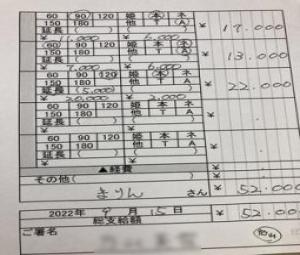 60 (90) 120 姫 (本) ネ
150 180 他 T (A) ¥ 17.000
延長( )( )
¥ 11,000 ¥ 6,000
60 (90) 120 姫 (本) ネ
150 180 他 T A ¥ 13.000
延長( )( )
¥ 7,000 ¥ 6,000
60 90 (120) 姫 (本) ネ
150 180 他 T A ¥ 22.000
延長(5,000)( )
¥ 20,000 ¥ 2,000
60 90 120 姫 本 ネ
150 180 他 T A ¥
延長( )( )
¥ ¥
60 90 120 姫 本 ネ
150 180 他 T A ¥
延長( )( )
▲経費 ¥
その他( ) ¥
まりん さん ¥ 52.000
2022年 9月 15日 ¥ 52.00
総支給額
ご署名